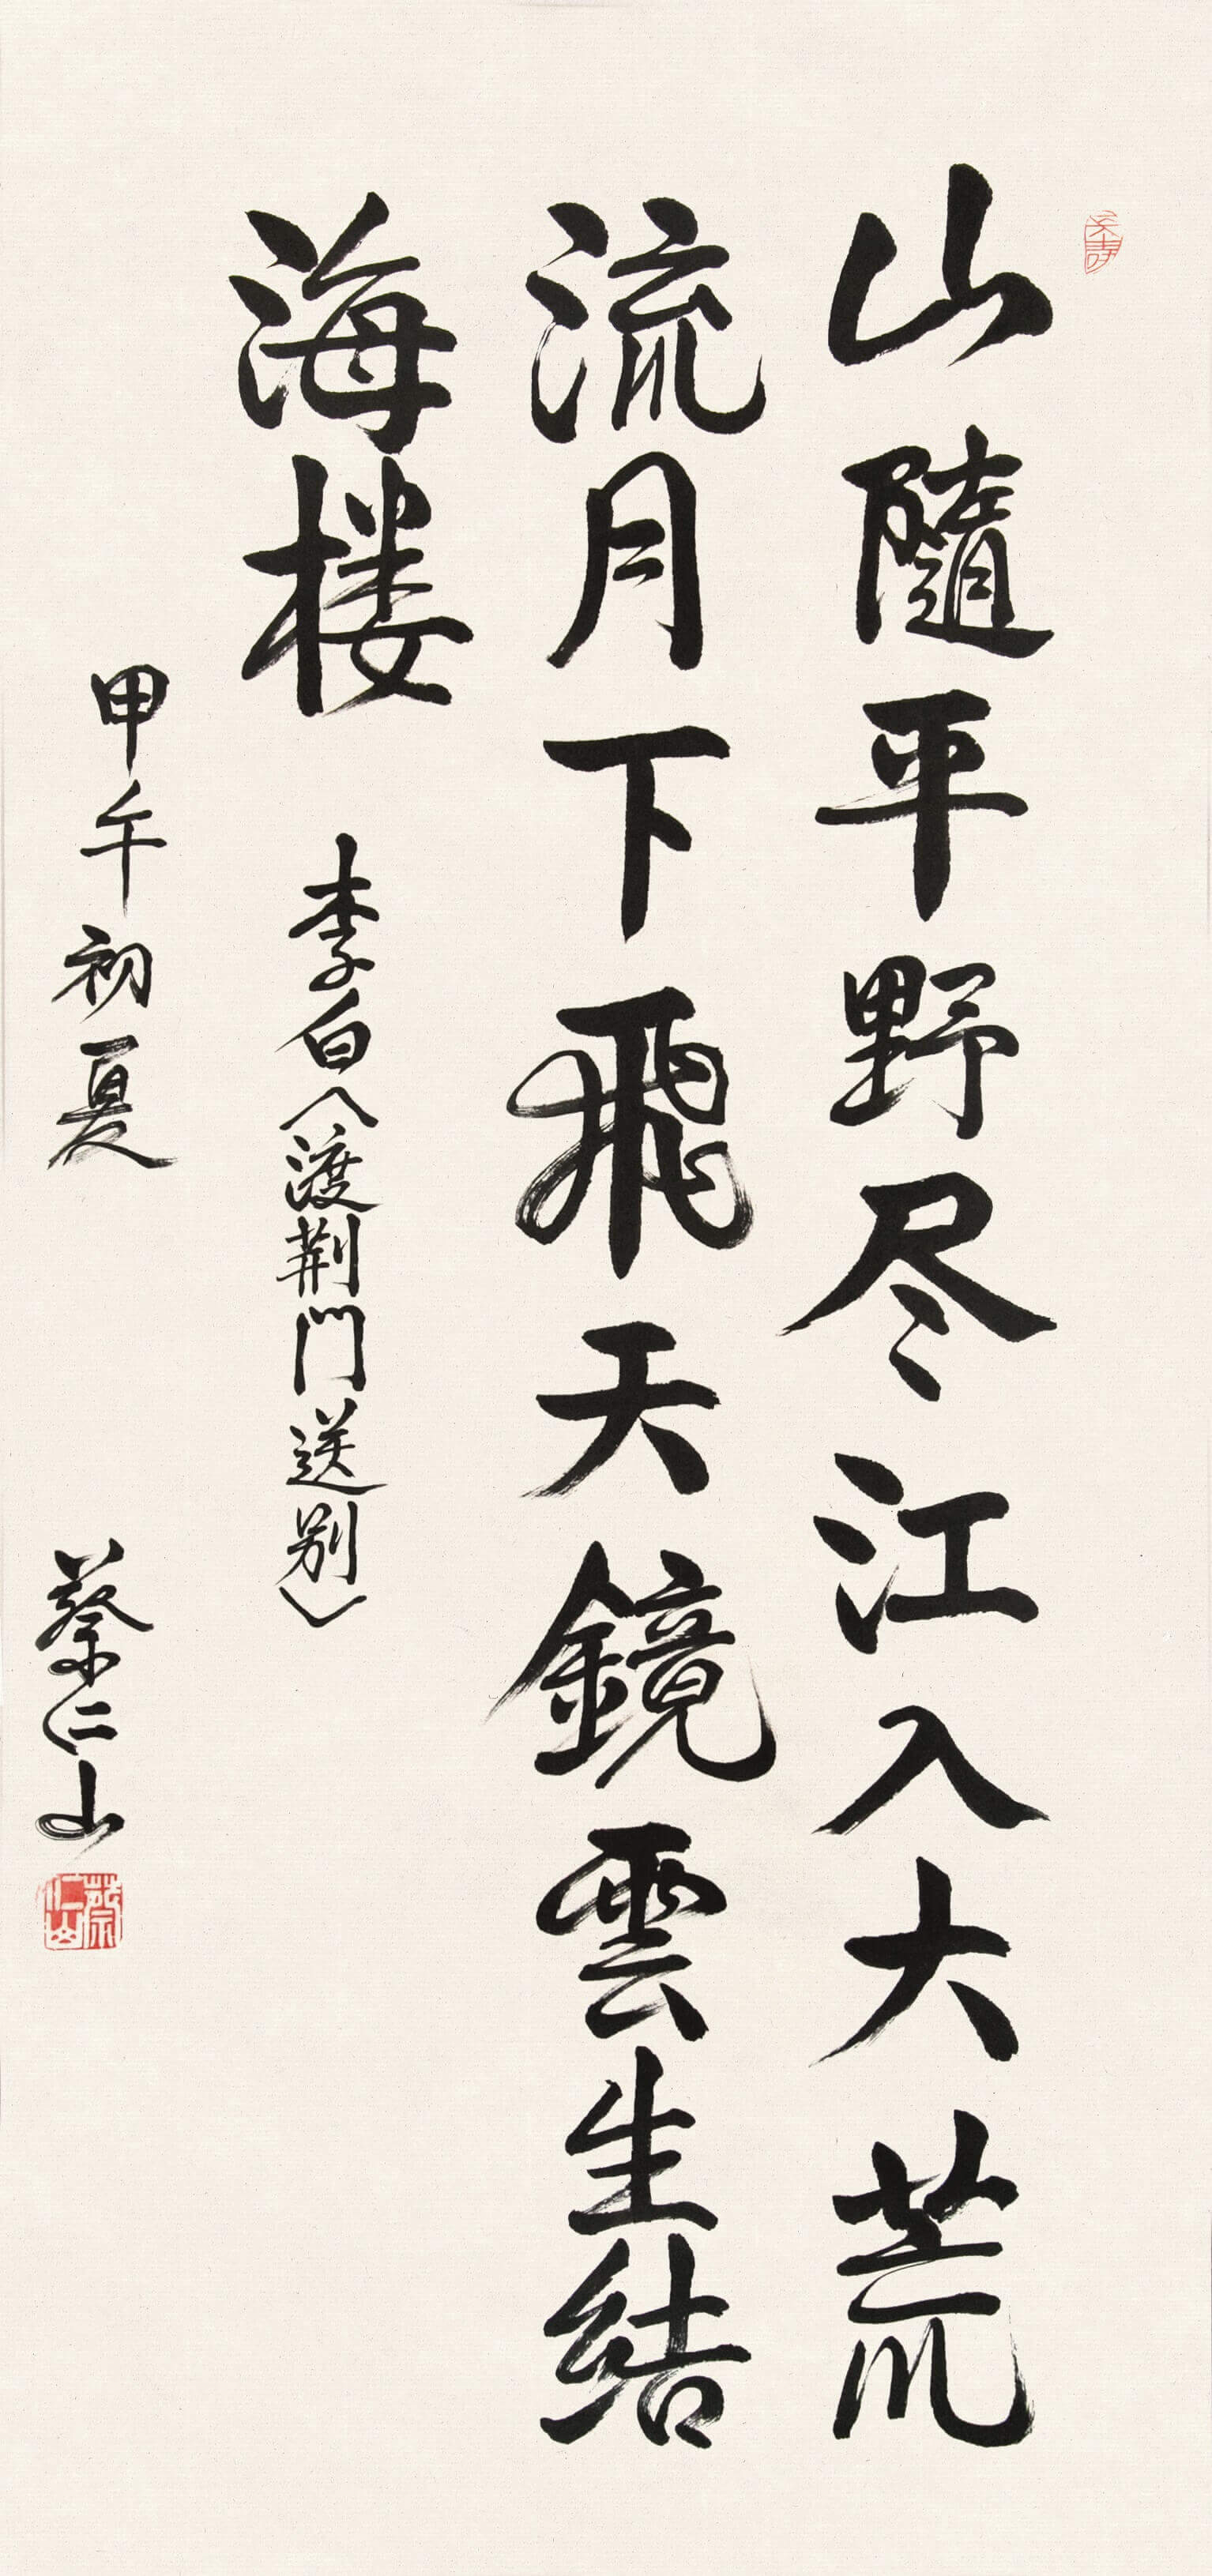 山隨平野尽江入大荒
流月下飛天鏡雲生结
海楼
李白《渡荆门送别》
甲午初夏
蔡仁山
蔡仁山